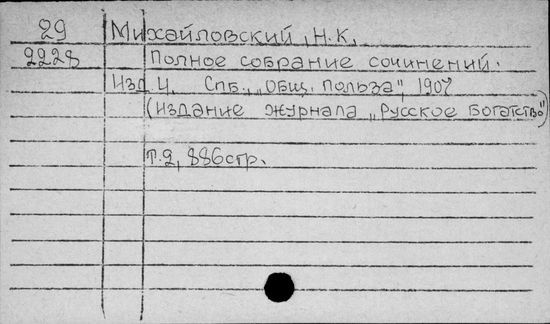 29 Михайловский, Н.К.
2228 Полное собрание сочинений.
Изд 4. Спб., „Общ. Польза", 1907
(издание журнала „Русское Богатство")
т.2, 886стр.